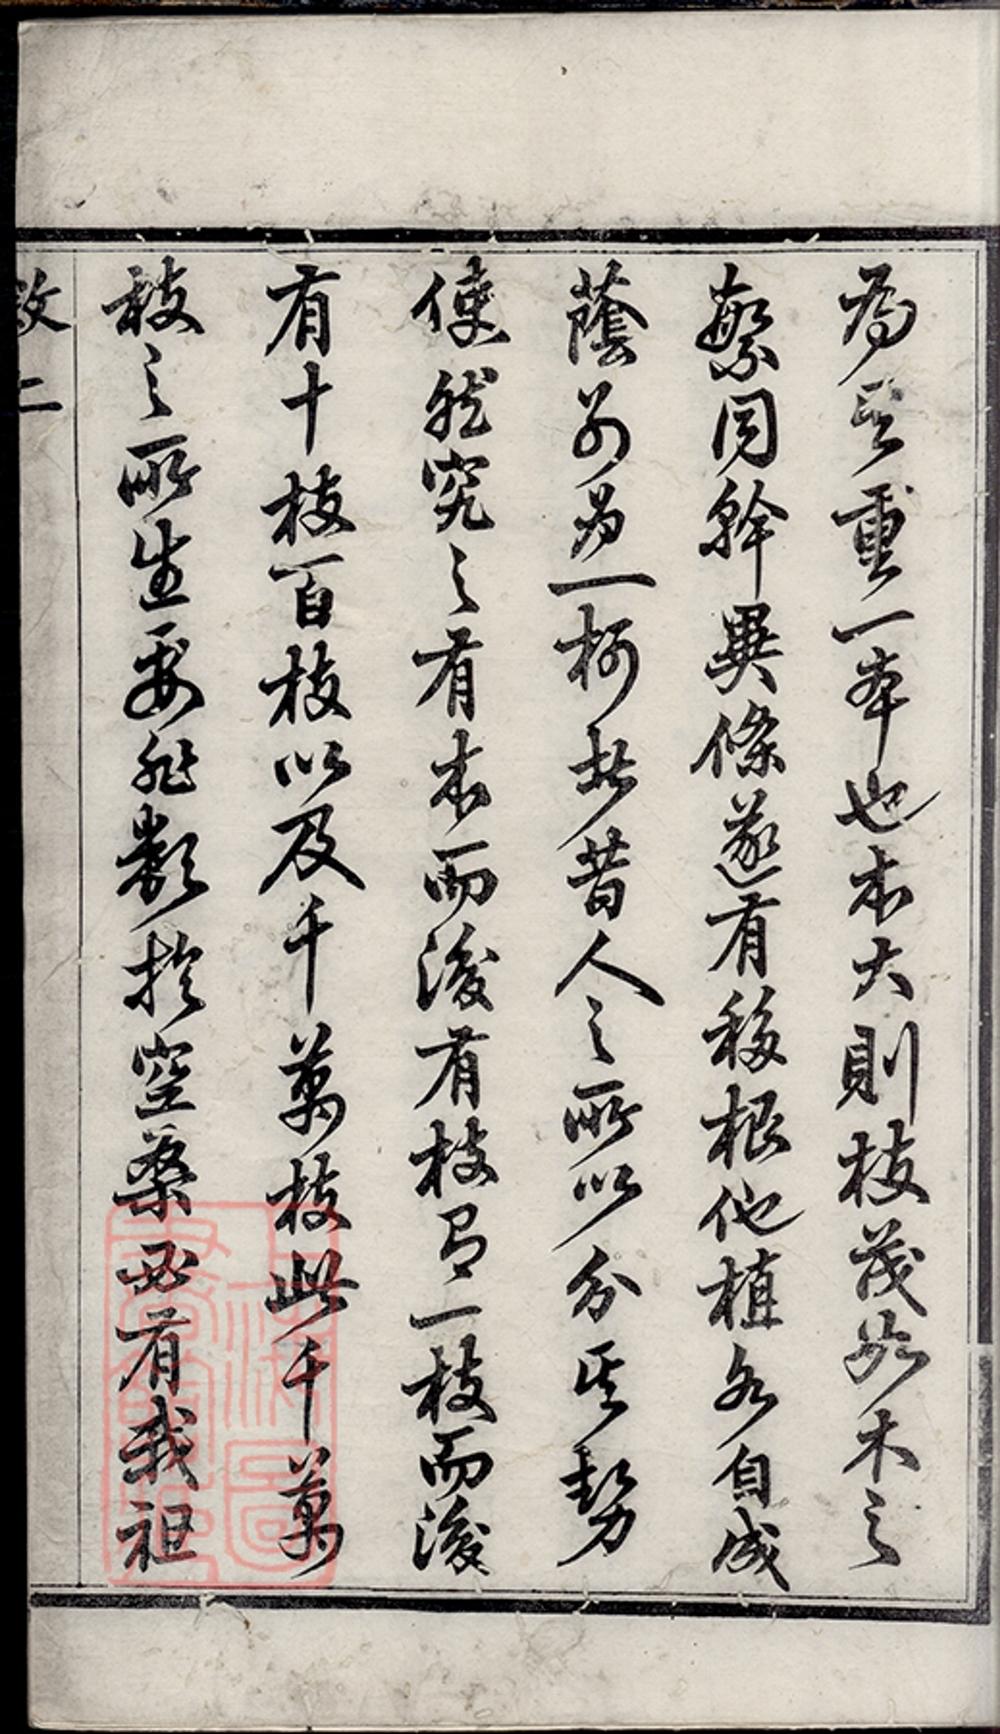 為其重一本也本大則枝茂如木之
繁同幹異條遂有移根他植各自成
蔭另為一柯者昔人之所以分其勢
使然究之有本而後有枝有一枝而後
有十枝百枝以及千萬枝此千萬
枝之所生要非數於空桑必有我祖
二